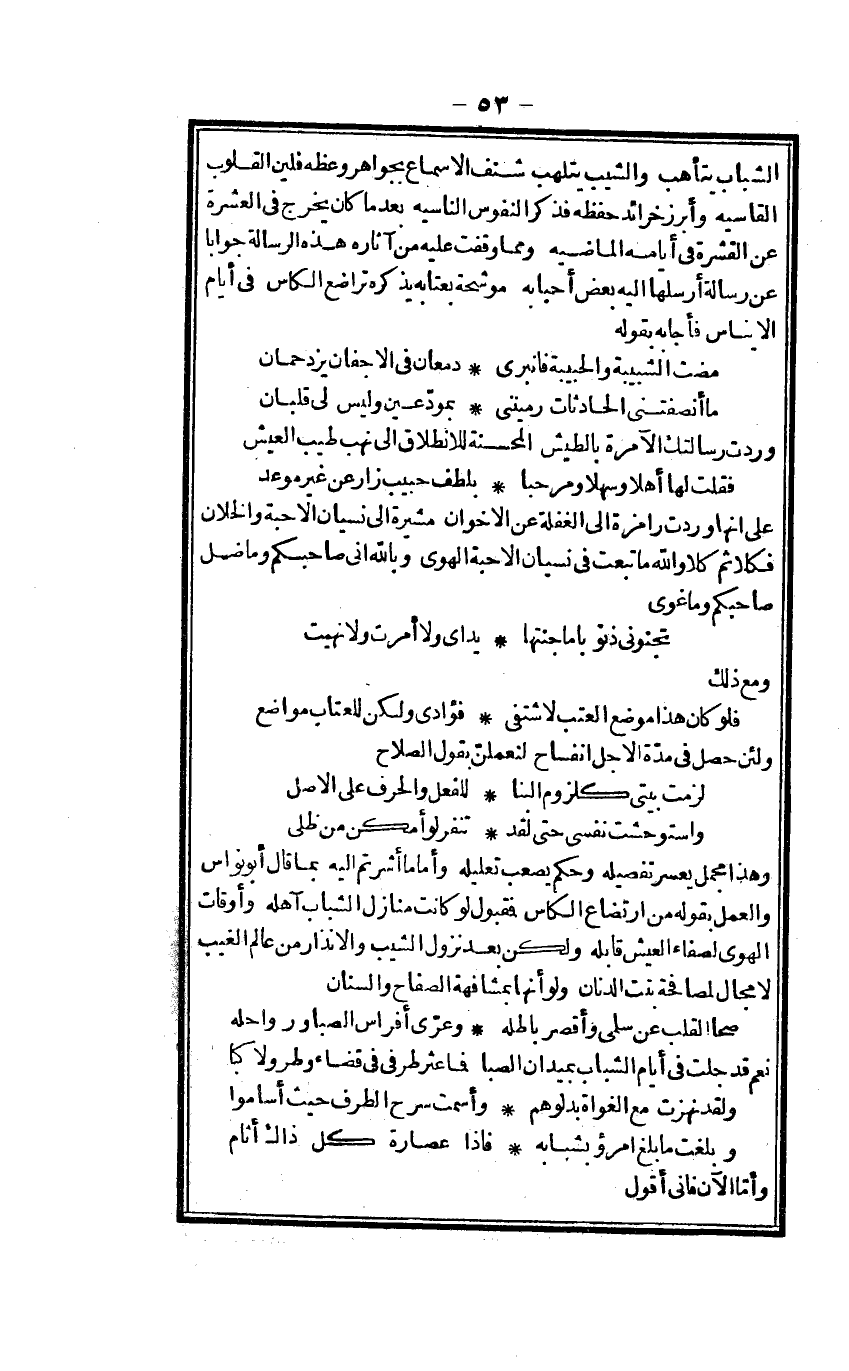 - ٥٣ -
الشباب يتأهب والشيب يتلهب شـنف الاسماع بجواهر وعظه فلين القـلوب
القاسيه وأبرز خرائد حفظه فذكر النفوس الناسيه بعد ما كان يخرج فى العشرة
عن القشرة فى أيامـه المـاضـيه ومما وقفت عليه من آثاره هـذه الرسالة جوابا
عن رسالة أرسلها اليه بعض أحبابه موشحة بعتابه يذكره تراضع الـكاس فى أيام
الايناس فأجابه بقوله
مضت الشبيبة والحبيبة فانبرى * دمعان فى الاجفان يزدحمان
ما أنصفتـنى الحادثات رميننى * بمودّعـين وليس لى قلبـان
وردت رسالتك الآمرة بالطيش المحسـنة للانطلاق الى نهب طيب العيش
فقلت لها أهلا وسهلا ومرحبا * بلطف حبيب زار عن غير موعد
على انها وردت رامزة الى الغفلة عن الاخوان مشيرة الى نسيان الاحبة والخلان
فـكلا ثم كلا والله ما تبعت فى نسيان الاحبة الهوى وبالله انى صاحبـكم وما ضـل
صاحبكم وما غوى
تجنوا فى ذنوبا ما جنتها * يداى ولا أمرت ولا نهيت
ومع ذلك
فلو كان هذا موضع العتب لاشتفى * فؤادى ولـكن للعتاب مواضع
ولئن حصل فى مدّة الاجل انفساح لنعملنّ بقول الصلاح
لزمت بيتى كلزوم البنا * للفعل والحرف على الاصل
واستوحشت نفسى حتى لقد * تنفر لو أمكن من ظلى
وهذا مجمل يعسر تفصيله وحكم يصعب تعليله وأما ما أشرتم اليه بمـا قال أبو نواس
والعمل بقوله من ارتضاع الـكاس فقبول لو كانت منازل الشباب آهله وأوقات
الهوى لصفاء العيش قابله ولـكن بعـد نزول الشيب والانذار من عالم الغيب
لا مجال لمصافحة بنت الدنان ولو أنها بمشافهة الصفاح والسنان
صحا القلب عن سلمى وأقصر باطله * وعرّى أفراس الصبا ورواحله
نعم قد جلت فى أيام الشباب بميدان الصبا فـاعثر طرفى فى قضـاء وطر ولا كبا
ولقد نهزت مع الغواة بدلوهم * وأسمت سرح الطرف حيث أساموا
وبلغت ما بلغ امرؤ بشبـابه * فاذا عصـارة كل ذاك أثام
وأمّا الآن فانى أقول